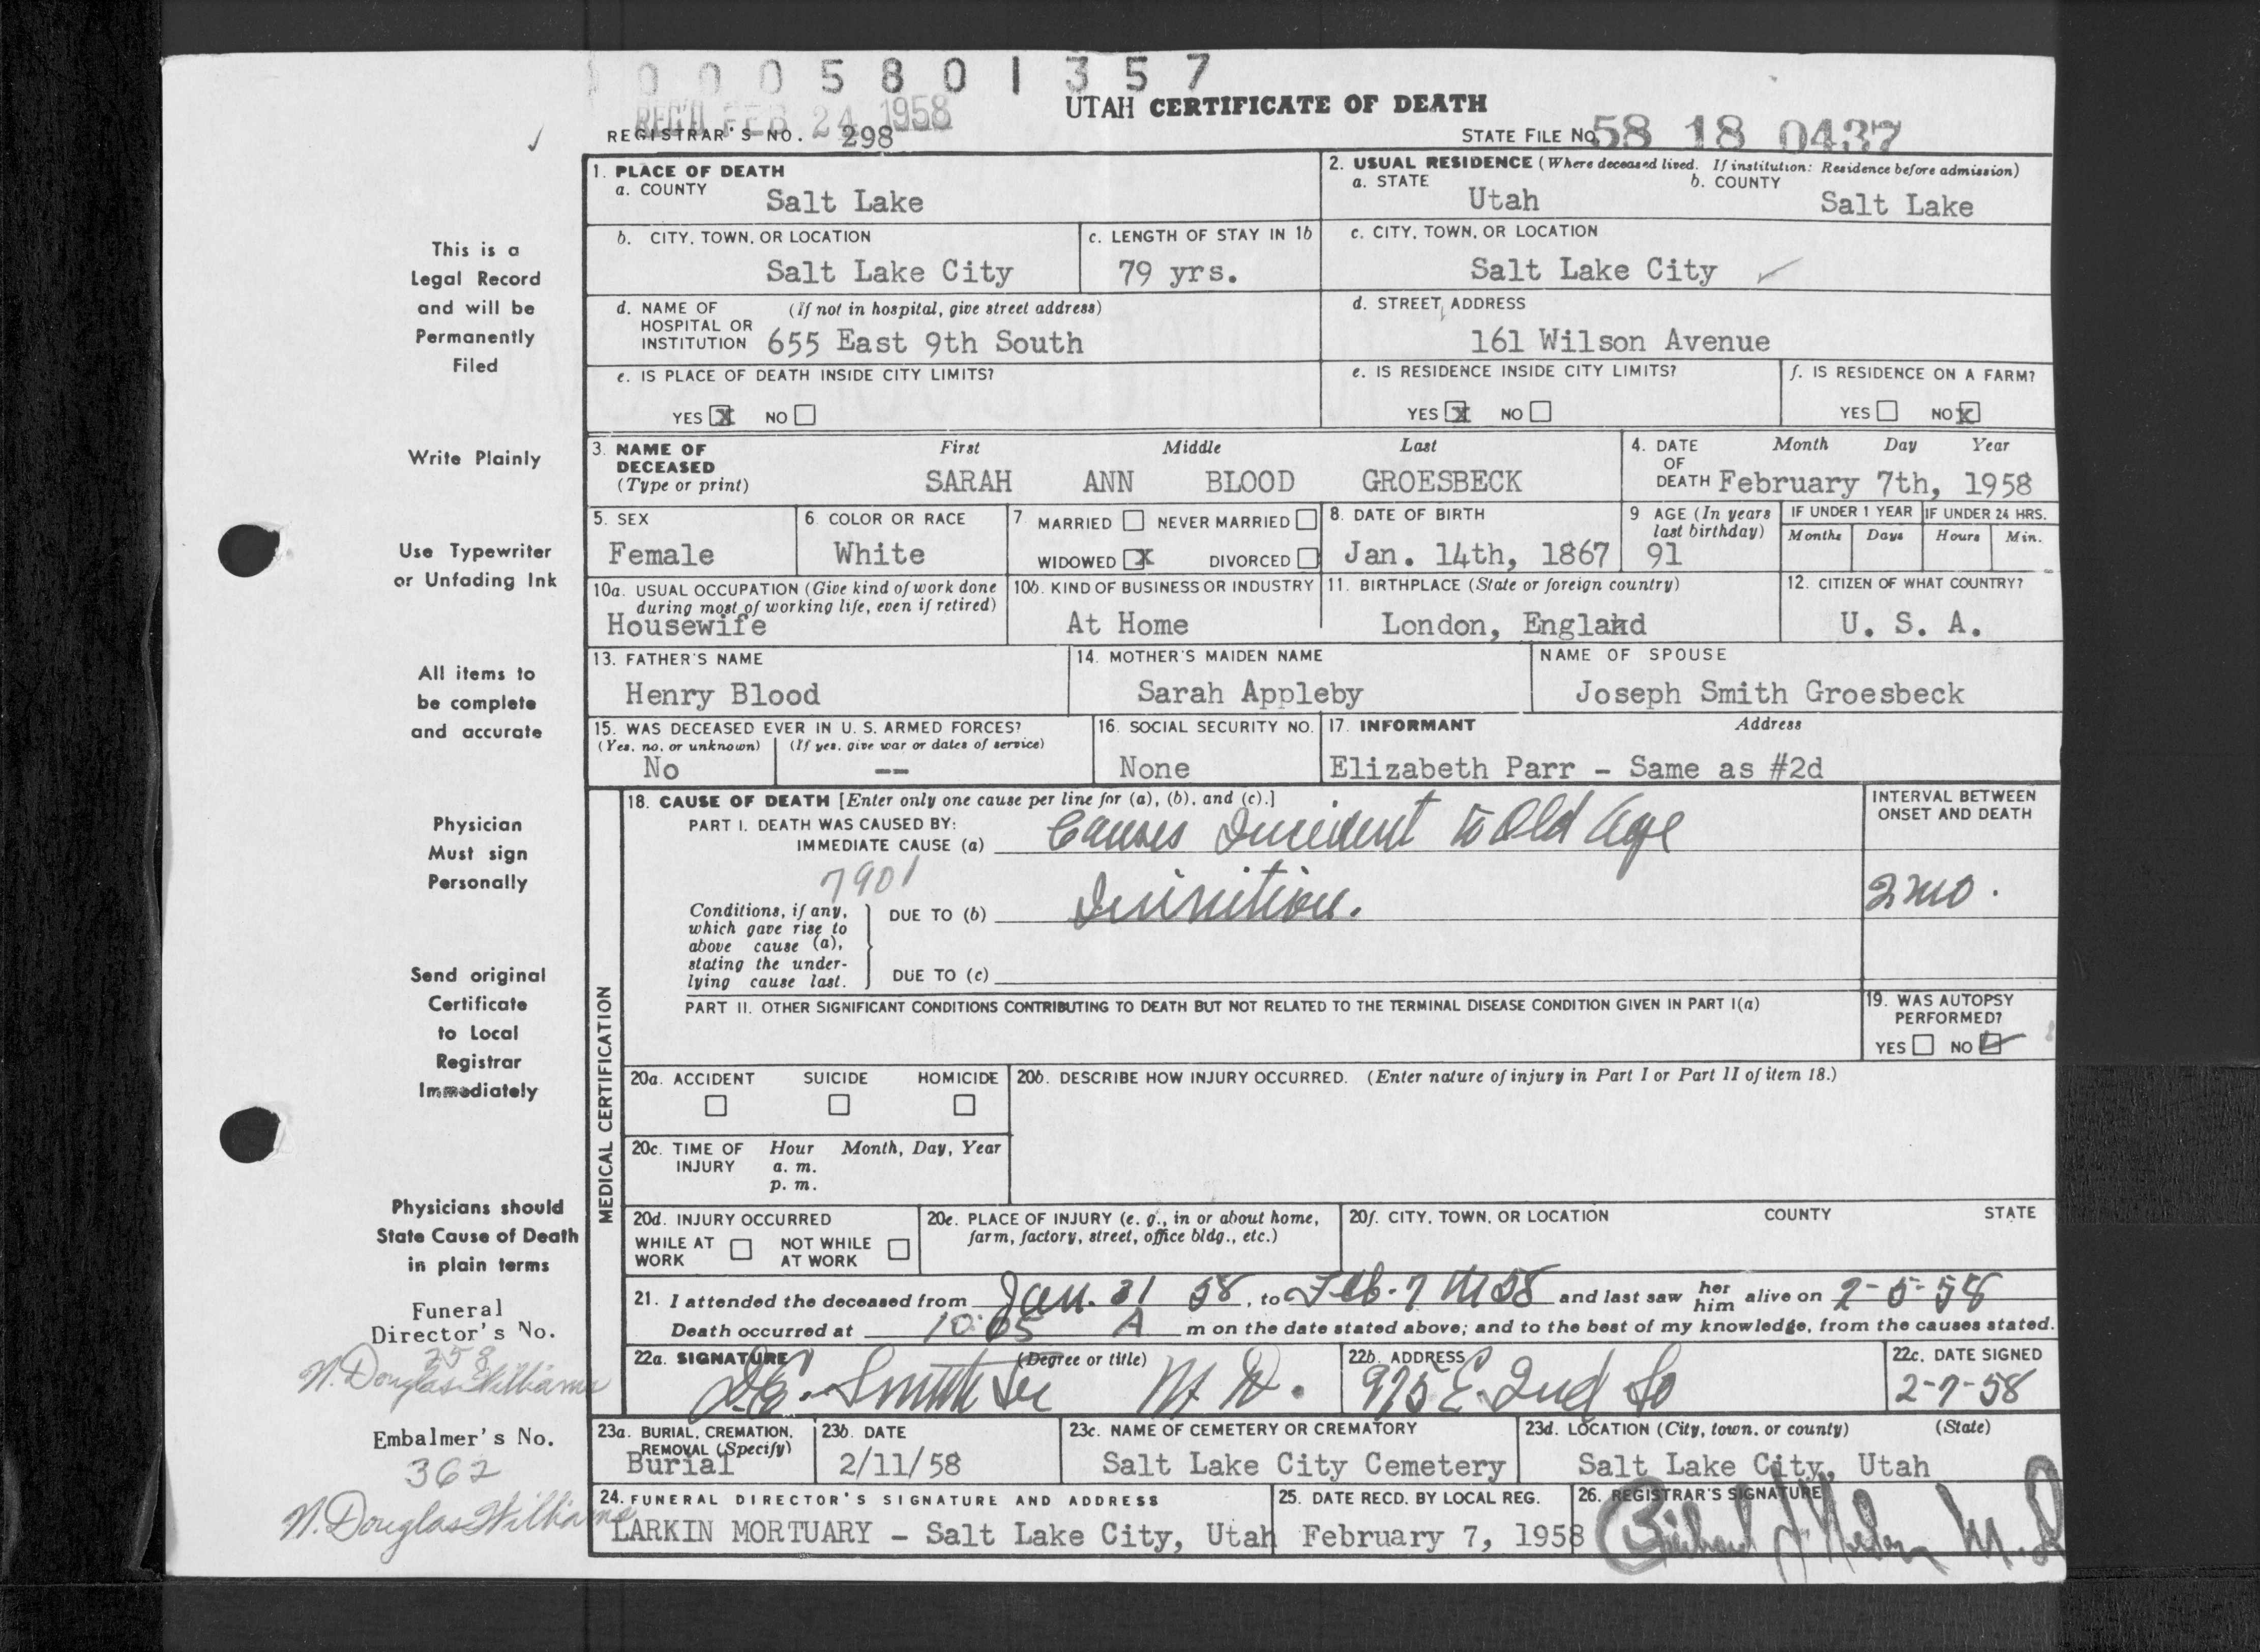 0 0 0 5 8 0 1 3 5 7
REC'D FEB 24 1958
UTAH CERTIFICATE OF DEATH
REGISTRAR'S NO. 298
STATE FILE NO. 58 18 0437
1. PLACE OF DEATH
a. COUNTY
Salt Lake
2. USUAL RESIDENCE (Where deceased lived. If institution: Residence before admission)
a. STATE
Utah
b. COUNTY
Salt Lake
b. CITY, TOWN, OR LOCATION
Salt Lake City
c. LENGTH OF STAY IN 1b
79 yrs.
c. CITY, TOWN, OR LOCATION
Salt Lake City
d. NAME OF (If not in hospital, give street address)
HOSPITAL OR
INSTITUTION 655 East 9th South
d. STREET ADDRESS
161 Wilson Avenue
e. IS PLACE OF DEATH INSIDE CITY LIMITS?
YES X NO
e. IS RESIDENCE INSIDE CITY LIMITS?
YES X NO
f. IS RESIDENCE ON A FARM?
YES NO X
3. NAME OF
DECEASED
(Type or print)
First Middle Last
SARAH ANN BLOOD GROESBECK
4. DATE Month Day Year
OF
DEATH February 7th, 1958
5. SEX
Female
6. COLOR OR RACE
White
7 MARRIED NEVER MARRIED
WIDOWED X DIVORCED
8. DATE OF BIRTH
Jan. 14th, 1867
9 AGE (In years
last birthday)
91
IF UNDER 1 YEAR
Months Days
IF UNDER 24 HRS.
Hours Min.
10a. USUAL OCCUPATION (Give kind of work done
during most of working life, even if retired)
Housewife
10b. KIND OF BUSINESS OR INDUSTRY
At Home
11. BIRTHPLACE (State or foreign country)
London, England
12. CITIZEN OF WHAT COUNTRY?
U. S. A.
13. FATHER'S NAME
Henry Blood
14. MOTHER'S MAIDEN NAME
Sarah Appleby
NAME OF SPOUSE
Joseph Smith Groesbeck
15. WAS DECEASED EVER IN U. S. ARMED FORCES?
(Yes, no, or unknown) (If yes, give war or dates of service)
No --
16. SOCIAL SECURITY NO.
None
17. INFORMANT Address
Elizabeth Parr - Same as #2d
MEDICAL CERTIFICATION
18. CAUSE OF DEATH [Enter only one cause per line for (a), (b), and (c).]
PART I. DEATH WAS CAUSED BY:
IMMEDIATE CAUSE (a) Causes Incident to Old Age
7901
INTERVAL BETWEEN
ONSET AND DEATH
Conditions, if any,
which gave rise to
above cause (a),
stating the under-
lying cause last.
DUE TO (b) Ininition.
2 mo.
DUE TO (c)
PART II. OTHER SIGNIFICANT CONDITIONS CONTRIBUTING TO DEATH BUT NOT RELATED TO THE TERMINAL DISEASE CONDITION GIVEN IN PART I(a)
19. WAS AUTOPSY
PERFORMED?
YES NO
20a. ACCIDENT SUICIDE HOMICIDE
20b. DESCRIBE HOW INJURY OCCURRED. (Enter nature of injury in Part I or Part II of item 18.)
20c. TIME OF Hour Month, Day, Year
INJURY a. m.
p. m.
20d. INJURY OCCURRED
WHILE AT NOT WHILE
WORK AT WORK
20e. PLACE OF INJURY (e. g., in or about home,
farm, factory, street, office bldg., etc.)
20f. CITY, TOWN, OR LOCATION COUNTY STATE
21. I attended the deceased from Jan. 31 58, to Feb. 7 th 58 and last saw her him alive on 2-5-58
Death occurred at 10:05 A m on the date stated above; and to the best of my knowledge, from the causes stated.
22a. SIGNATURE (Degree or title)
Smith M. D.
22b. ADDRESS
975 E. 2nd So
22c. DATE SIGNED
2-7-58
23a. BURIAL, CREMATION,
REMOVAL (Specify)
Burial
23b. DATE
2/11/58
23c. NAME OF CEMETERY OR CREMATORY
Salt Lake City Cemetery
23d. LOCATION (City, town, or county) (State)
Salt Lake City, Utah
24. FUNERAL DIRECTOR'S SIGNATURE AND ADDRESS
LARKIN MORTUARY - Salt Lake City, Utah
25. DATE RECD. BY LOCAL REG.
February 7, 1958
26. REGISTRAR'S SIGNATURE
This is a
Legal Record
and will be
Permanently
Filed
Write Plainly
Use Typewriter
or Unfading Ink
All items to
be complete
and accurate
Physician
Must sign
Personally
Send original
Certificate
to Local
Registrar
Immediately
Physicians should
State Cause of Death
in plain terms
Funeral
Director's No.
258
N. Douglas Williams
Embalmer's No.
362
N. Douglas Williams